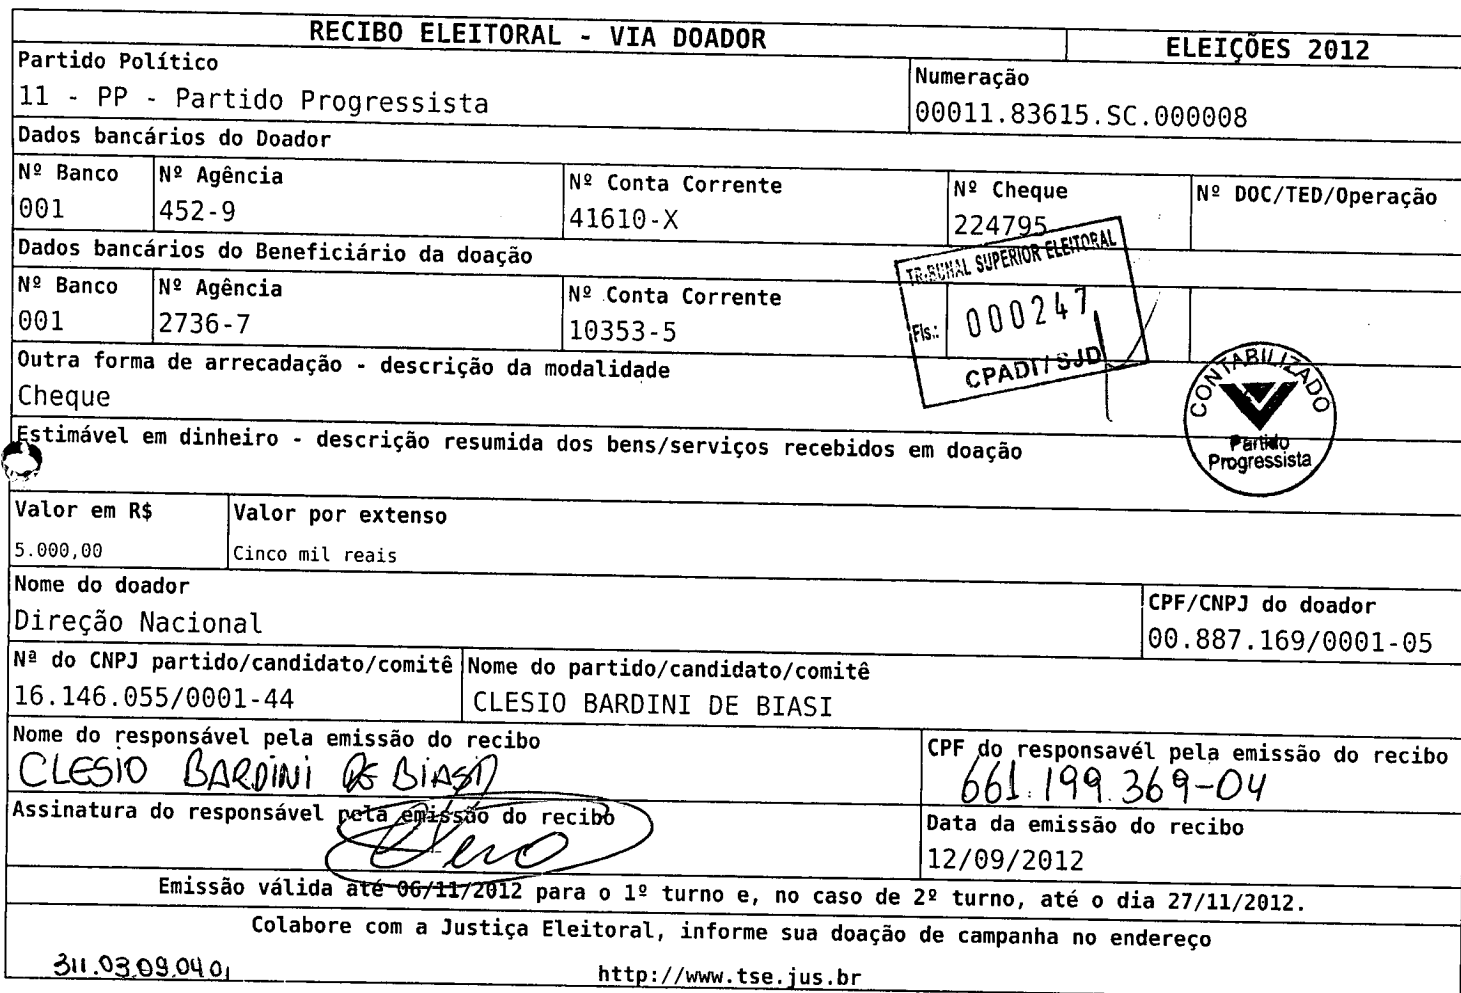 RECIBO ELEITORAL - VIA DOADOR
ELEIÇÕES 2012
Partido Político
11 - PP - Partido Progressista
Numeração
00011.83615.SC.000008
Dados bancários do Doador
Nº Banco
001
Nº Agência
452-9
Nº Conta Corrente
41610-X
Nº Cheque
224795
Nº DOC/TED/Operação
Dados bancários do Beneficiário da doação
TRIBUNAL SUPERIOR ELEITORAL
Fls.: 000247
CPADI/SJD
Nº Banco
001
Nº Agência
2736-7
Nº Conta Corrente
10353-5
Outra forma de arrecadação - descrição da modalidade
Cheque
CONTABILIZADO
Partido
Progressista
Estimável em dinheiro - descrição resumida dos bens/serviços recebidos em doação
Valor em R$
5.000,00
Valor por extenso
Cinco mil reais
Nome do doador
Direção Nacional
CPF/CNPJ do doador
00.887.169/0001-05
Nª do CNPJ partido/candidato/comitê
16.146.055/0001-44
Nome do partido/candidato/comitê
CLESIO BARDINI DE BIASI
Nome do responsável pela emissão do recibo
CLESIO BARDINI DE BIASI
CPF do responsavél pela emissão do recibo
661.199.369-04
Assinatura do responsável pela emissão do recibo
Data da emissão do recibo
12/09/2012
Emissão válida até 06/11/2012 para o 1º turno e, no caso de 2º turno, até o dia 27/11/2012.
Colabore com a Justiça Eleitoral, informe sua doação de campanha no endereço
311.03.09.04.01
http://www.tse.jus.br